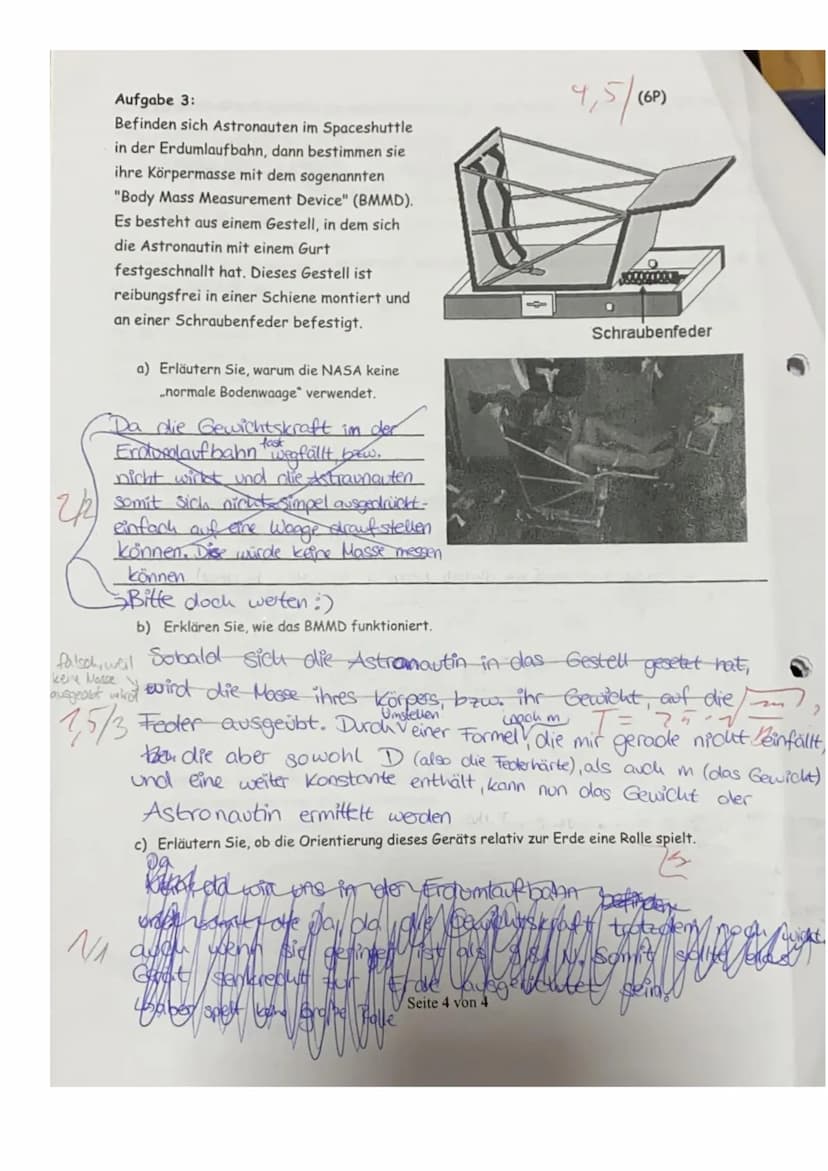 4,5/ (6P)
Aufgabe 3:
Befinden sich Astronauten im Spaceshuttle
in der Erdumlaufbahn, dann bestimmen sie
ihre Körpermasse mit dem sogenannten
"Body Mass Measurement Device" (BMMD).
Es besteht aus einem Gestell, in dem sich
die Astronautin mit einem Gurt
festgeschnallt hat. Dieses Gestell ist
reibungsfrei in einer Schiene montiert und
an einer Schraubenfeder befestigt.
Schraubenfeder
a) Erläutern Sie, warum die NASA keine
„normale Bodenwaage" verwendet.
Da die Gewichtskraft im der
Erdumlaufbahn fast wegfällt, bzw.
nicht wirkt und die Astraunauten
somit sich nicht simpel ausgedrückt
einfach auf eine Waage draufstellen
können. Diese würde keine Masse messen
können
2/2
→Bitte doch werten :)
b) Erklären Sie, wie das BMMD funktioniert.
falsch, weil
keine Masse
ausgeübt wird
1,5/3
Sobald sich die Astronautin in das Gestell gesetzt hat,
wird die Masse ihres Körpers, bzw. ihr Gewicht, auf die
Feder ausgeübt. Durch Umstellen einer Formel nach m, die mir gerade nicht einfällt,
T = 2π·
die aber sowohl D (also die Federhärte), als auch m (das Gewicht)
und eine weiter Konstante enthält, kann nun das Gewicht der
Astronautin ermittelt werden
c) Erläutern Sie, ob die Orientierung dieses Geräts relativ zur Erde eine Rolle spielt.
1/1
Da wir uns in der Erdumlaufbahn befinden
die Gewichtskraft trotzdem noch
auch wenn sie geringer ist als 9,81 N. Somit sollte das
Gerät senkrecht zur Erde ausgerichtet sein.
aber spielt keine große Rolle
Seite 4 von 4